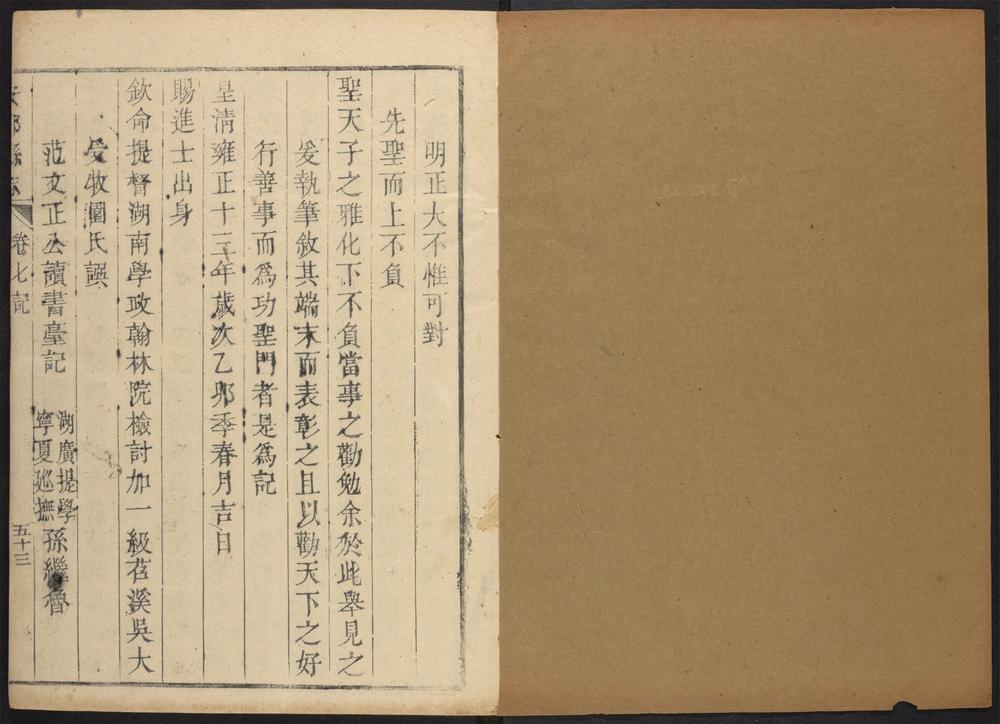 明正大不惟可對
先聖而上不負
聖天子之雅化下不負當事之勸勉余於此舉見之
爰執筆敘其端末而表彰之且以勸天下之好
行善事而爲功聖門者是爲記
皇清雍正十三年歲次乙夘季春月吉日
賜進士出身
欽命提督湖南學政翰林院檢討加一級苕溪吳大
受牧園氏譔
范文正公讀書臺記 湖廣提學寧夏廵撫孫繼魯
卷七記 五十三